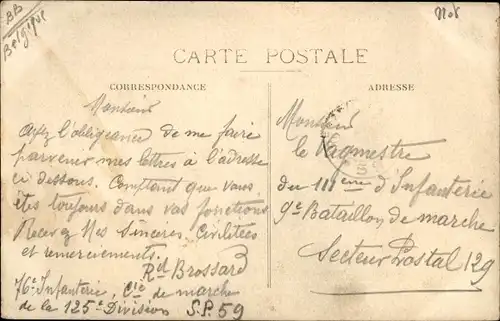 BB
Belgique
Nor
CARTE POSTALE
CORRESPONDANCE
ADRESSE
Monsieur
Ayez l'obligeance de me faire
parvenir mes lettres à l'adresse
ci dessous. Comptant que vous
êtes toujours dans vos fonctions
Recevez Mes Sincères Civilités
et remerciements.
Rd Brossard
76e Infanterie, Cie de marche
de la 125e Division S.P. 59
Monsieur
le Vagmestre
du 111ème d'Infanterie
9e Bataillon de marche
Secteur Postal 129